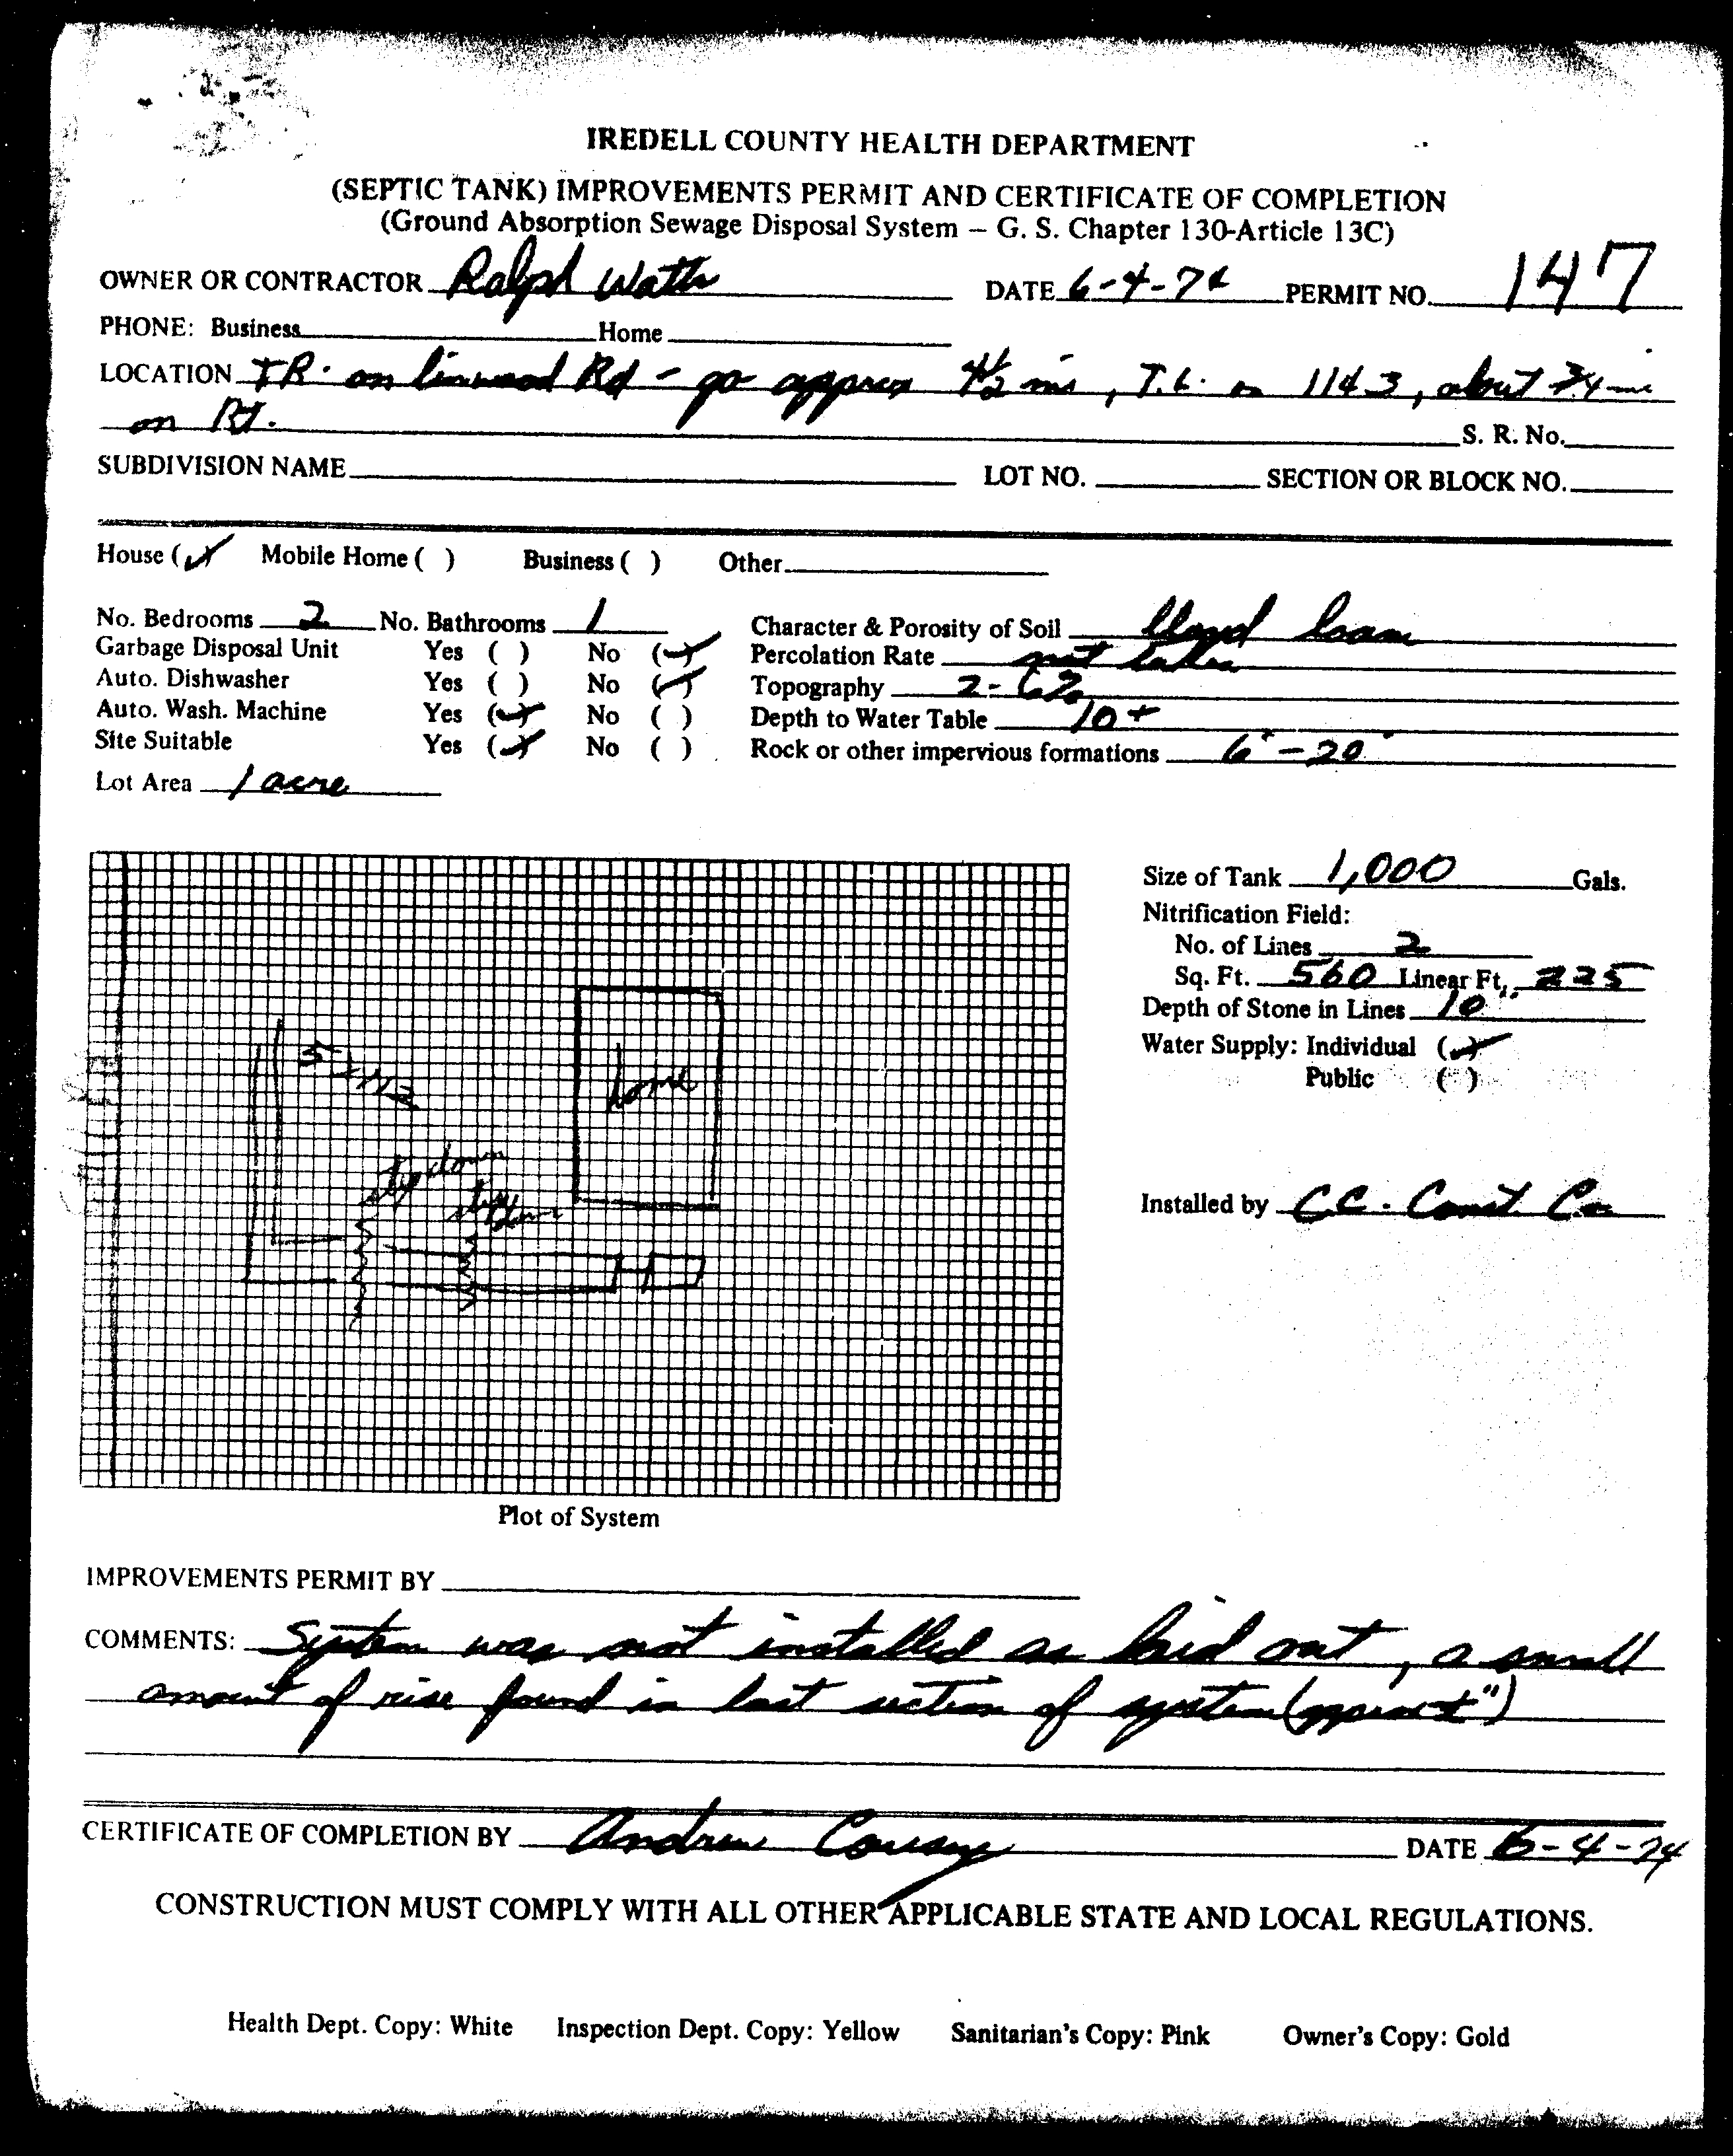 IREDELL COUNTY HEALTH DEPARTMENT
(SEPTIC TANK) IMPROVEMENTS PERMIT AND CERTIFICATE OF COMPLETION
(Ground Absorption Sewage Disposal System – G. S. Chapter 130-Article 13C)
OWNER OR CONTRACTOR Ralph Watts DATE 6-4-74 PERMIT NO. 147
PHONE: Business Home
LOCATION T.R. on linwood Rd - go approx 4 1/2 mi, T.L. on 1143, about 3/4 mi
on Rt. S. R. No.
SUBDIVISION NAME LOT NO. SECTION OR BLOCK NO.
House (✓) Mobile Home ( ) Business ( ) Other
No. Bedrooms 2 No. Bathrooms 1 Character & Porosity of Soil lloyd loam
Garbage Disposal Unit Yes ( ) No (✓) Percolation Rate not taken
Auto. Dishwasher Yes ( ) No (✓) Topography 2-6%
Auto. Wash. Machine Yes (✓) No ( ) Depth to Water Table 10+
Site Suitable Yes (✓) No ( ) Rock or other impervious formations 6'-20'
Lot Area 1 acre
Size of Tank 1,000 Gals.
Nitrification Field:
No. of Lines 2
Sq. Ft. 560 Linear Ft. 225
Depth of Stone in Lines 10"
Water Supply: Individual (✓)
Public ( )
home
step down
step down
Installed by C.C. Const. Co
Plot of System
IMPROVEMENTS PERMIT BY
COMMENTS: System was not installed as laid out, a small
amount of rise found in last section of system
CERTIFICATE OF COMPLETION BY Andrew DATE 6-4-74
CONSTRUCTION MUST COMPLY WITH ALL OTHER APPLICABLE STATE AND LOCAL REGULATIONS.
Health Dept. Copy: White Inspection Dept. Copy: Yellow Sanitarian's Copy: Pink Owner's Copy: Gold